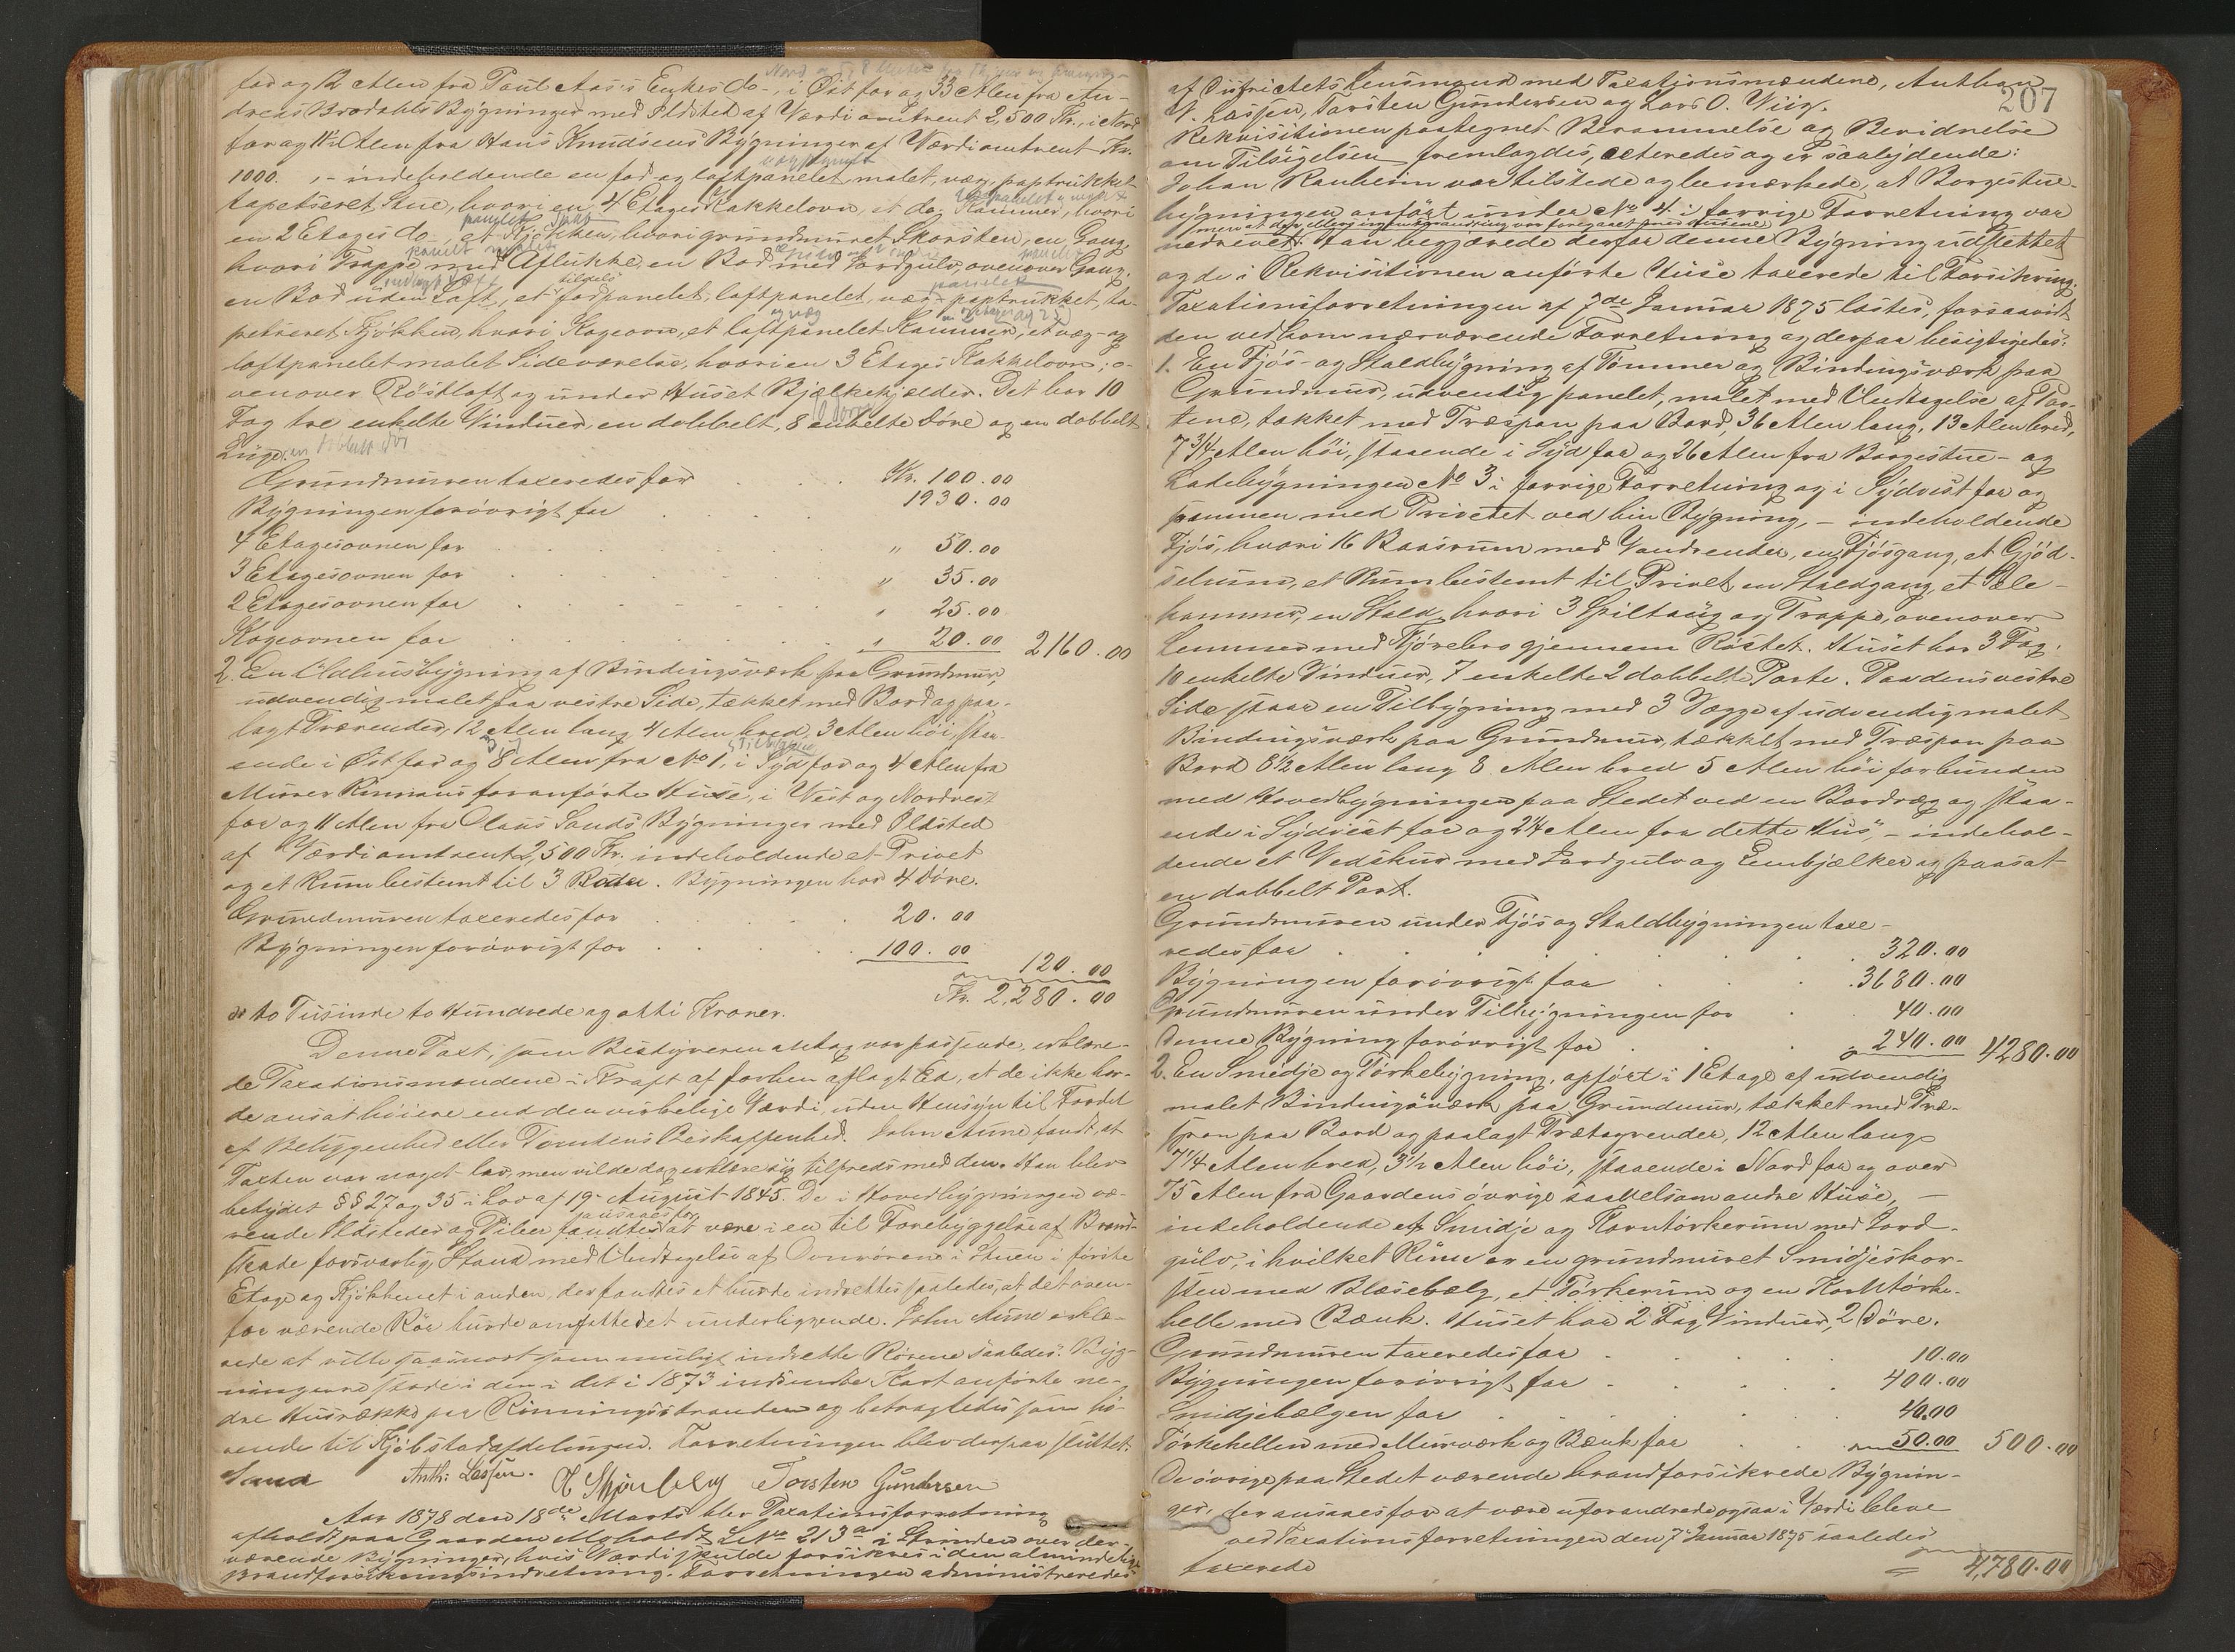 for og 12 Alen fra Paul Aas's Enkes do-, i Øst for og 33 Alen fra An-
dreas Brodahls Bygninger med Ildsted af Værdi omtrent 2,500 Kr., i Nord
for og 11 Alen fra Hans Knudsens Bygninger af Værdi omtrent Kr.
1000. ,- indeholdende en fod- og loftpanelet, malet, væg- paptrukket
tapetseret Stue, hvori en 4 Etages Kakkelovn, et do. Kammer, hvori
en 2 Etages do-, et Kjøkken, hvori grundmuret Skorsten, en Gang,
hvori Trappe med Aflukke, en Bod med Jordgulv, ovenover Gang.
en Bod uden Loft, et fodpanelet, loftpanelet, væg- paptrukket, ta-
petseret Kjøkken, hvori Kogeovn, et loftpanelet Kammer, et væg- og
loftpanelet malet Sideværelse, hvori en 3 Etages Kakkelovn; o-
venover Röstloft og under Huset Bjælkekjælder. Det har 10
Fag tre enkelte Vinduer, en dobbelt, 8 enkelte Døre og en dobbelt
Luge. en dobbelt Dør
Grundmuren taxeredes for Kr. 100.00
Bygningen forøvrigt for 1930.00
4 Etagesovnen for " 50.00
3 Etagesovnen for " 35.00
2 Etagesovnen for " 25.00
Kogeovnen for " 20.00 2160.00
2. En Udhusbygning af Bindingsværk paa Grundmur,
udvendig malet paa vestre Side, tækket med Bord og paa-
lagt Trærender, 12 Alen lang 4 Alen bred, 3 Alen høi, staa-
ende i Øst for og 8 Alen fra No 1, i Syd for og 4 Alen fra
Murer Rinnans foranførte Huse, i Vest og Nordvest
for og 11 Alen fra Olaus Sands Bygninger med Ildsted
af Værdi omtrent 2,500 Kr. indeholdende et Privet
og et Rum bestemt til 3 Boder. Bygningen har 4 Døre.
Grundmuren taxeredes for 20.00
Bygningen forøvrigt for 100.00
120.00
Kr. 2,280.00
er to Tusinde to Hundrede og otti Kroner.
Denne Taxt, som Bestyreren antog var passende, erklære-
de Taxationsmændene i Kraft af forhen aflagt Ed, at de ikke hav-
de ansat høiere end den virkelige Værdi, uden Hensyn til Fordel
af Beliggenhed eller Tomtens Beskaffenhed. John Aune fandt, at
Taxten var noget lav, men vilde dog erklære sig tilfreds med den. Han blev
betydet §§ 27 og 35 i Lov af 19 August 1845. De i Hovedbygningen væ-
rende Ildsteder og Piber fandtes at være i en til Forebyggelse af Brand-
skade forsvarlig Stand med Undtagelse af Ovnrørene i Stuen i første
Etage og Kjøkkenet i anden, der fandtes at burde indrettes saaledes, at det oven-
for værende Rør burde omfatte det underliggende. John Aune erklæ-
rede at ville saasnart som muligt indrette Rørene saaledes. Byg-
ningerne staar i den i det i 1873 indsendte Kart anførte ne-
dre Husrække paa Rinningsstranden og betragtedes som hø-
rende til Kjøbstadafdelingen. Forretningen blev derpaa sluttet.
Sand Anth: Lassen. O Skjønberg Torsten Gundersen
Aar 1878 den 18de Marts blev Taxationsforretning
afholdt paa Gaarden Moholdt L No 213a i Strinden over der-
værende Bygninger, hvis Værdi skulde forsikres i den almindelige
Brandforsikringsindretning. Forretningen administreredes
207
af Distriktets Lensmand med Taxationsmændene, Anthon
N. Lassen, Torsten Gundersen og Lars O. Wiig.
Rekvisitionen paategnet Berammelse og Bevidnelse
om Tilsigelsen fremlagdes, acteredes og er saalydende:
Johan Rauheim var tilstede og bemærkede, at Borgestue-
bygningen anført under No 4 i forrige Forretning var
nedrevet. Han begjærede derfor denne Bygning udslettet
og de i Rekvisitionen anførte Huse taxerede til Forsikring.
Taxationsforretningen af 7de Januar 1875 læstes, forsaavidt
den vedkom nærværende Forretning og derpaa besigtigedes:
1. En Fjøs- og Staldbygning af Tømmer og Bindingsværk paa
Grundmur, udvendig panelet, malet med Undtagelse af Por-
tene, tækket med Træspon paa Bord, 36 Alen lang, 13 Alen bred,
7 3/4 Alen høi, staaende i Syd for og 26 Alen fra Borgestue- og
Ladebygningen No 3 i forrige Forretning og i Sydvest for og
sammen med Privetet ved hin Bygning, - indeholdende
Fjøs, hvori 16 Baasrum med Vandrender, en Fjøsgang, et Gjød-
selrum, et Rum bestemt til Privet, en Staldgang, et Sele-
kammer, en Stald hvori 3 Spiltaug og Trappe, ovenover
Lemmer med Kjørebro gjennem Røstet. Huset har 3 Fag,
10 enkelte Vinduer, 7 enkelte 2 dobbelte Porte. Paa dens vestre
Side staar en Tilbygning med 3 Vægge af udvendig malet
Bindingsværk paa Grundmur, tækket med Træspon paa
Bord 8 1/2 Alen lang 8 Alen bred 5 Alen høi forbunden
med Hovedbygningen paa Stedet ved en Bordvæg og staa-
ende i Sydvest for og 24 Alen fra dette Hus, - indehol-
dende et Vedskur med Jordgulv og Lembjælker og paasat
en dobbelt Port.
Grundmuren under Fjøs og Staldbygningen taxe-
redes for 320.00
Bygningen forøvrigt for 3680.00
Grundmuren under Tilbygningen for 40.00
Denne Bygning forøvrigt for 240.00 4280.00
2. En Smedje og Tørkebygning, opført i 1 Etage af udvendig
malet Bindingsværk paa Grundmur, tækket med Træ-
spon paa Bord og paalagt Trætagrender, 12 Alen lang
7 1/4 Alen bred, 3 1/2 Alen høi, staaende i Nord for og over
75 Alen fra Gaardens øvrige saavelsom andre Huse, -
indeholdende et Smidje og Korntørkerum med Jord-
gulv, i hvilket Rum er en grundmuret Smidjeskor-
sten med Blæsebælg, et Tørkerum og en Korntørke-
helle med Bænk. Huset har 2 Fag Vinduer, 2 Døre.
Grundmuren taxeredes for 10.00
Bygningen forøvrigt for 400.00
Smidjebælgen for 40.00
Tørkehellen med Murværk og Bænk for 50.00 500.00
De øvrige paa Stedet værende brandforsikrede Bygnin-
ger, der ansaaes for at være uforandrede ogsaa i Værdi bleve
ved Taxationsforretningen den 7 Januar 1875 saaledes
taxerede = 4,780.00